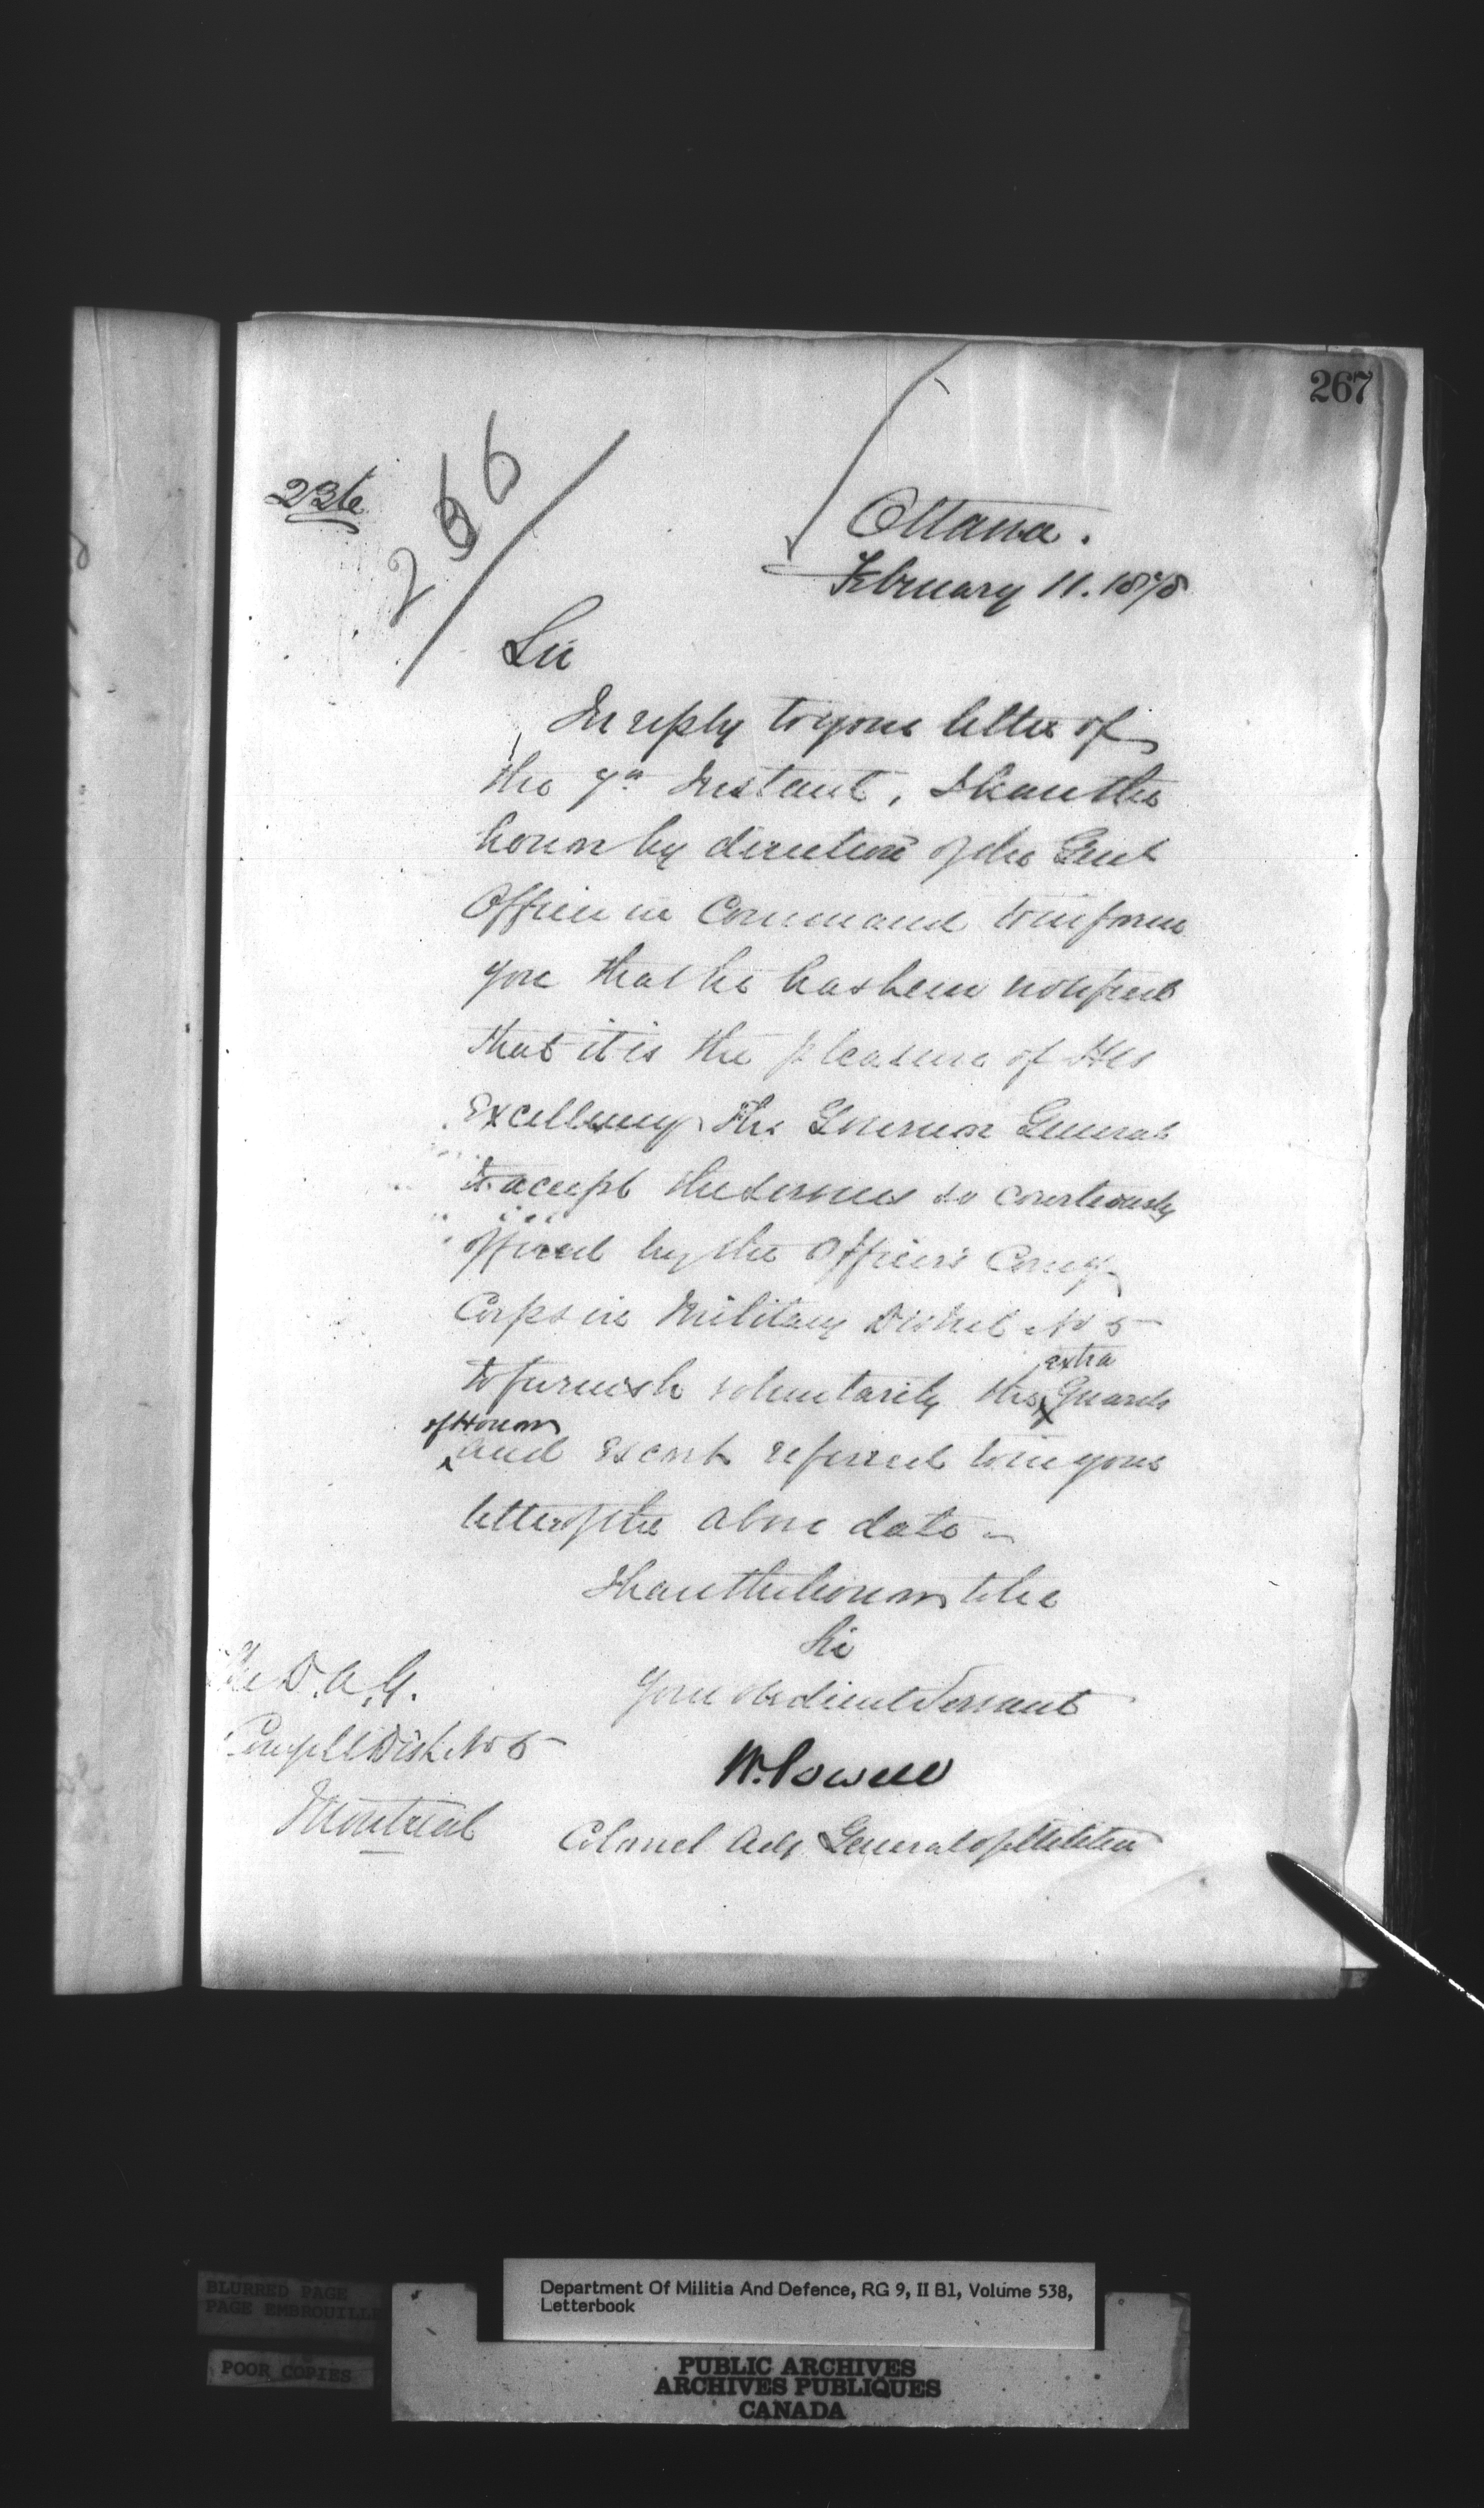 267
266
Ottawa.
February 11. 1878
Sir
In reply to your letter of
the 7th Instant, I have the
honor by direction of the Lieut
Officer in Command to inform
you that he has been notified
that it is the pleasure of His
Excellency The Governor General
to accept the services so courteously
offered by the Officers Comg
Corps in Military District No 5
to furnish voluntarily the extra Guards
of Honor and Escort referred to in your
letter of the above date
I have the honor to be
Sir
Your obedient Servant
W. Powell
Colonel Adjt General of Militia
The D.A.G.
Comg Ml Dist No 5
Montreal
BLURRED PAGE
PAGE EMBROUILLE
POOR COPIES
Department Of Militia And Defence, RG 9, II B1, Volume 538,
Letterbook
PUBLIC ARCHIVES
ARCHIVES PUBLIQUES
CANADA